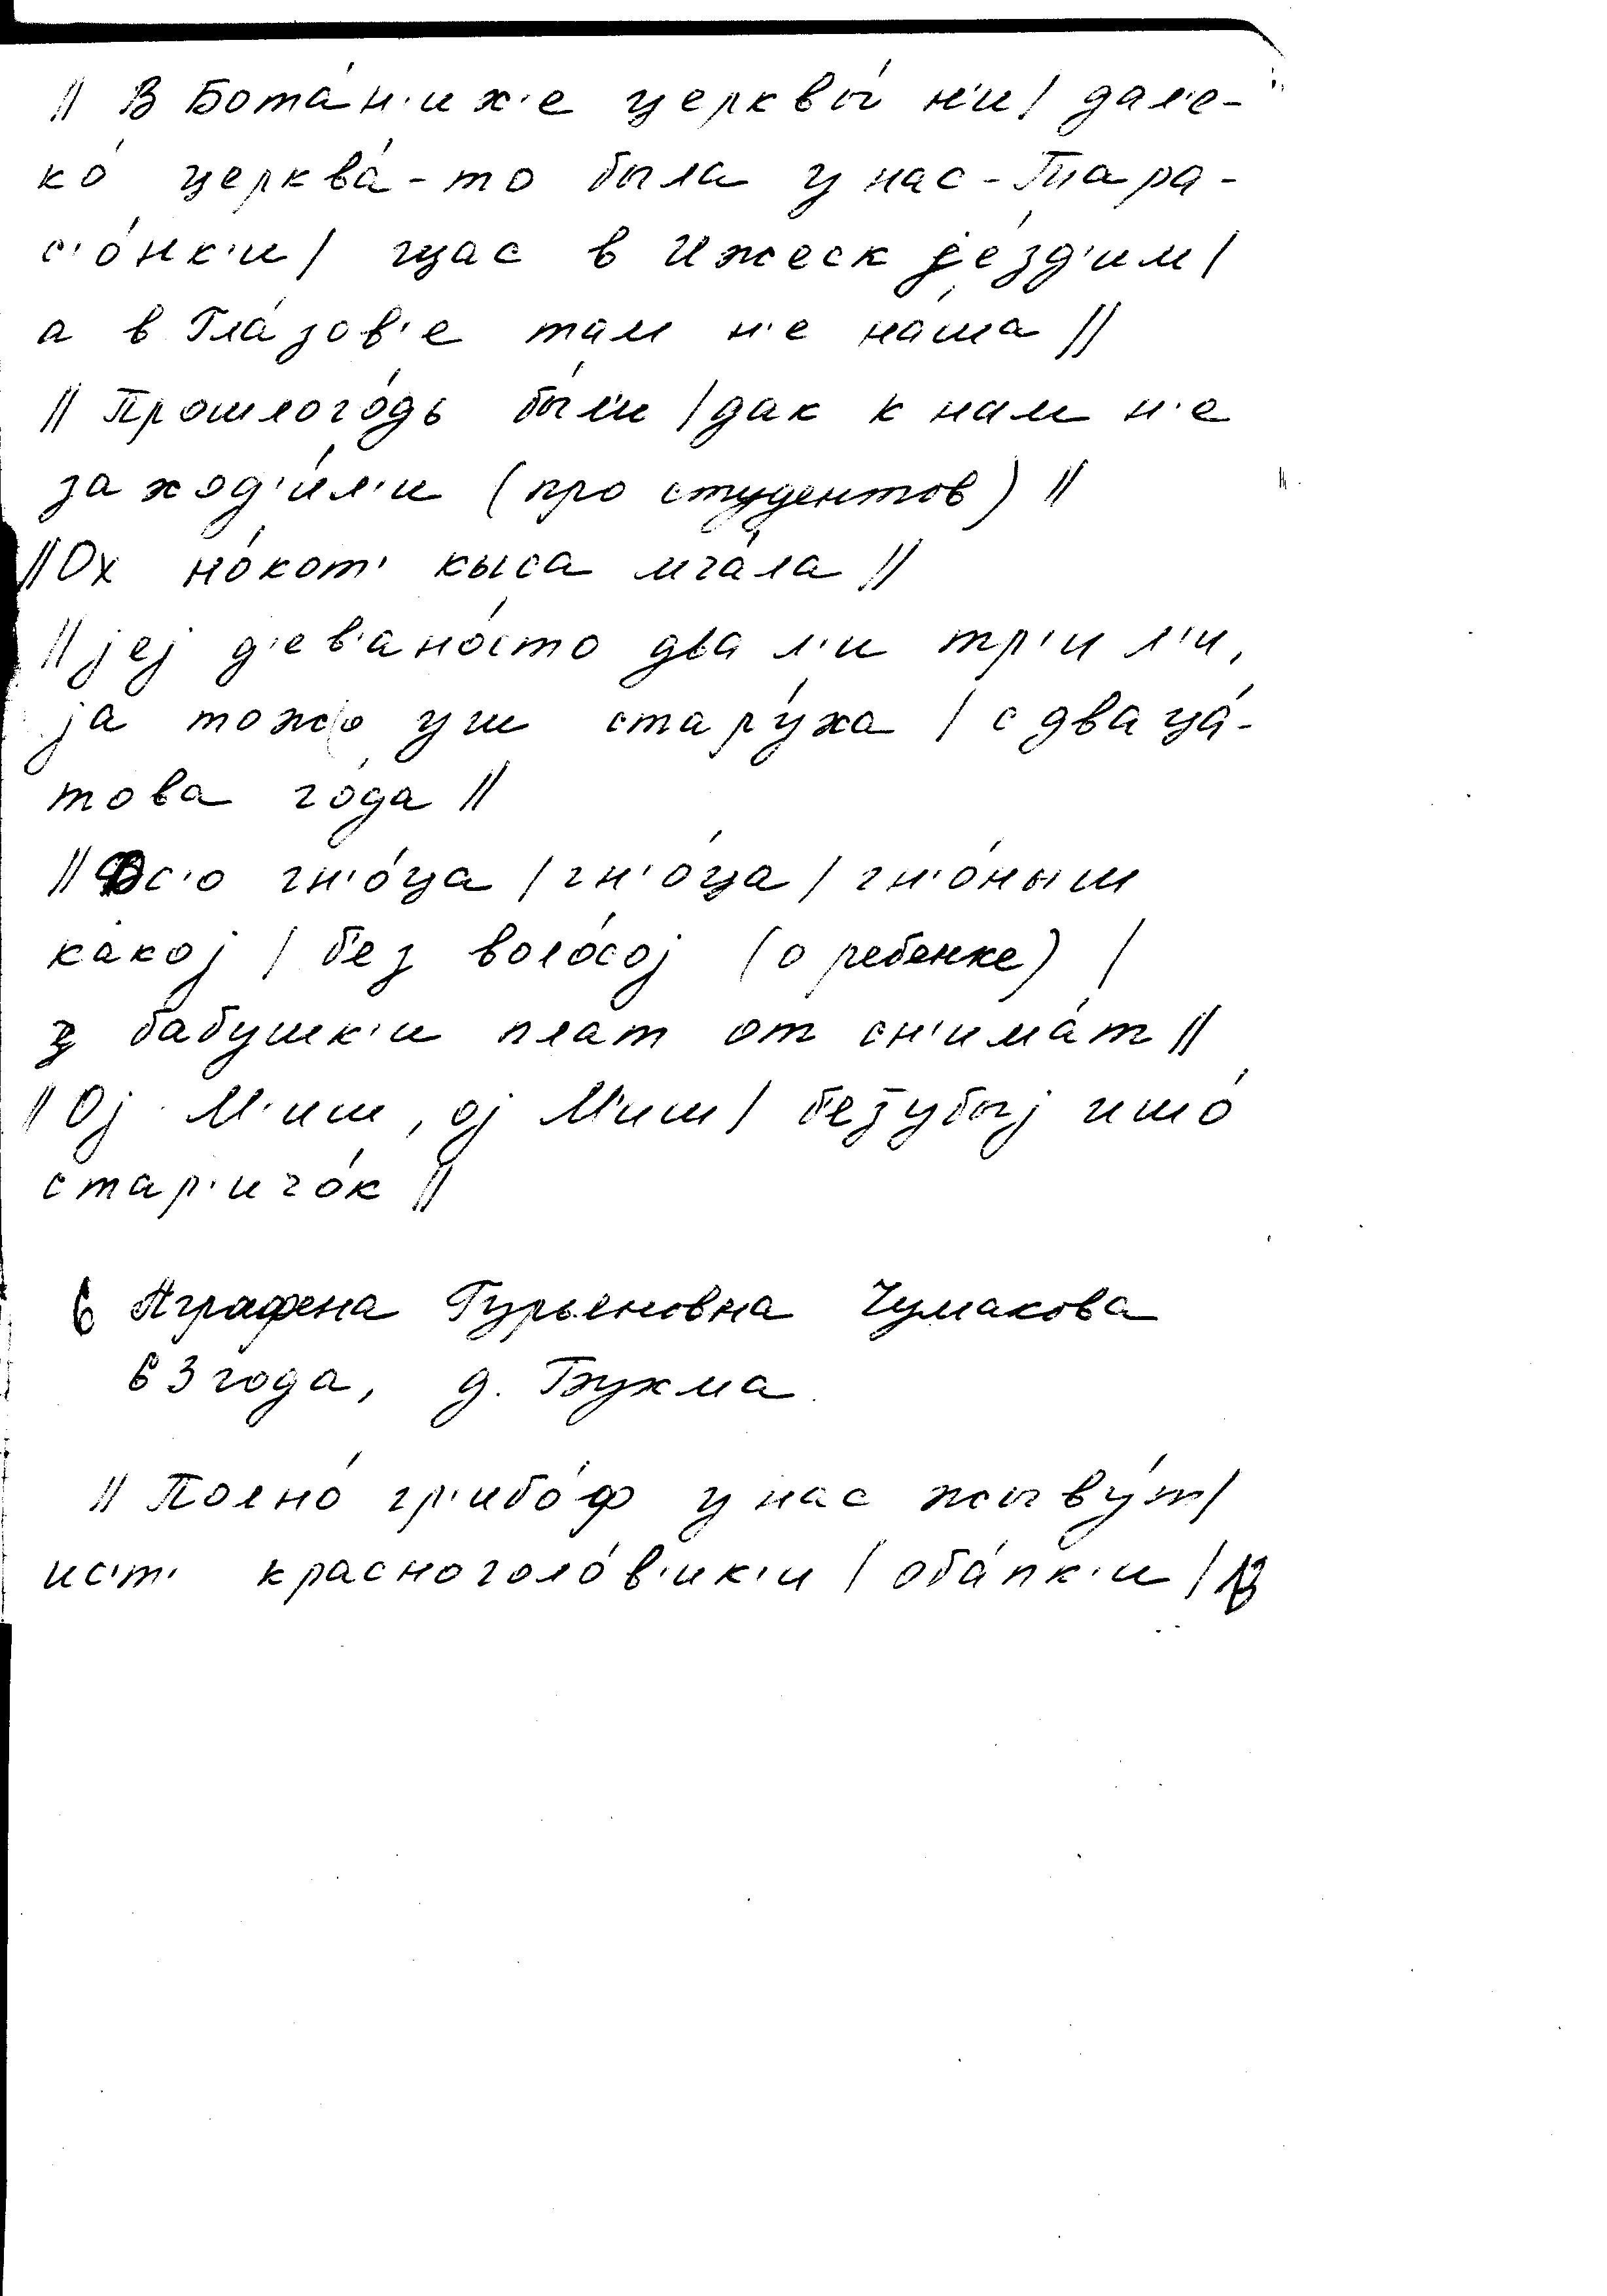 || В Бота́н'их'е церквы́ н'и | дал'е-
ко́ церква́-то была у нас - Тара-
с'о́нк'и | щас в Ижеск је́зд'им |
а в Гла́зов'е там н'е на́ша ||
|| Прошлого́дь бы́л'и | дак к нам н'е
заход'и́л'и (про студентов) ||
|| Ох но́кот' кыса мча́ла ||
|| јеј д'ев'ано́сто два л'и тр'и л'и,
ја тожо уш стару́ха | с дваца́-
това го́да ||
|| Фс'о гн'о́ца | гн'о́ца | гн'о́ныш
какој | б'ез воло́сој (о ребенке) |
з бабушк'и плат от сн'има́т ||
|| Ој М'иш, ој М'иш | б'еззубыј ишо́
стар'ичо́к ||
6 Аграфена Гурьяновна Чумакова
63 года, д. Бухма
|| Полно́ гр'ибо́ф у нас жыву́т |
ис'т' красноголо́в'ик'и | оба́пк'и |